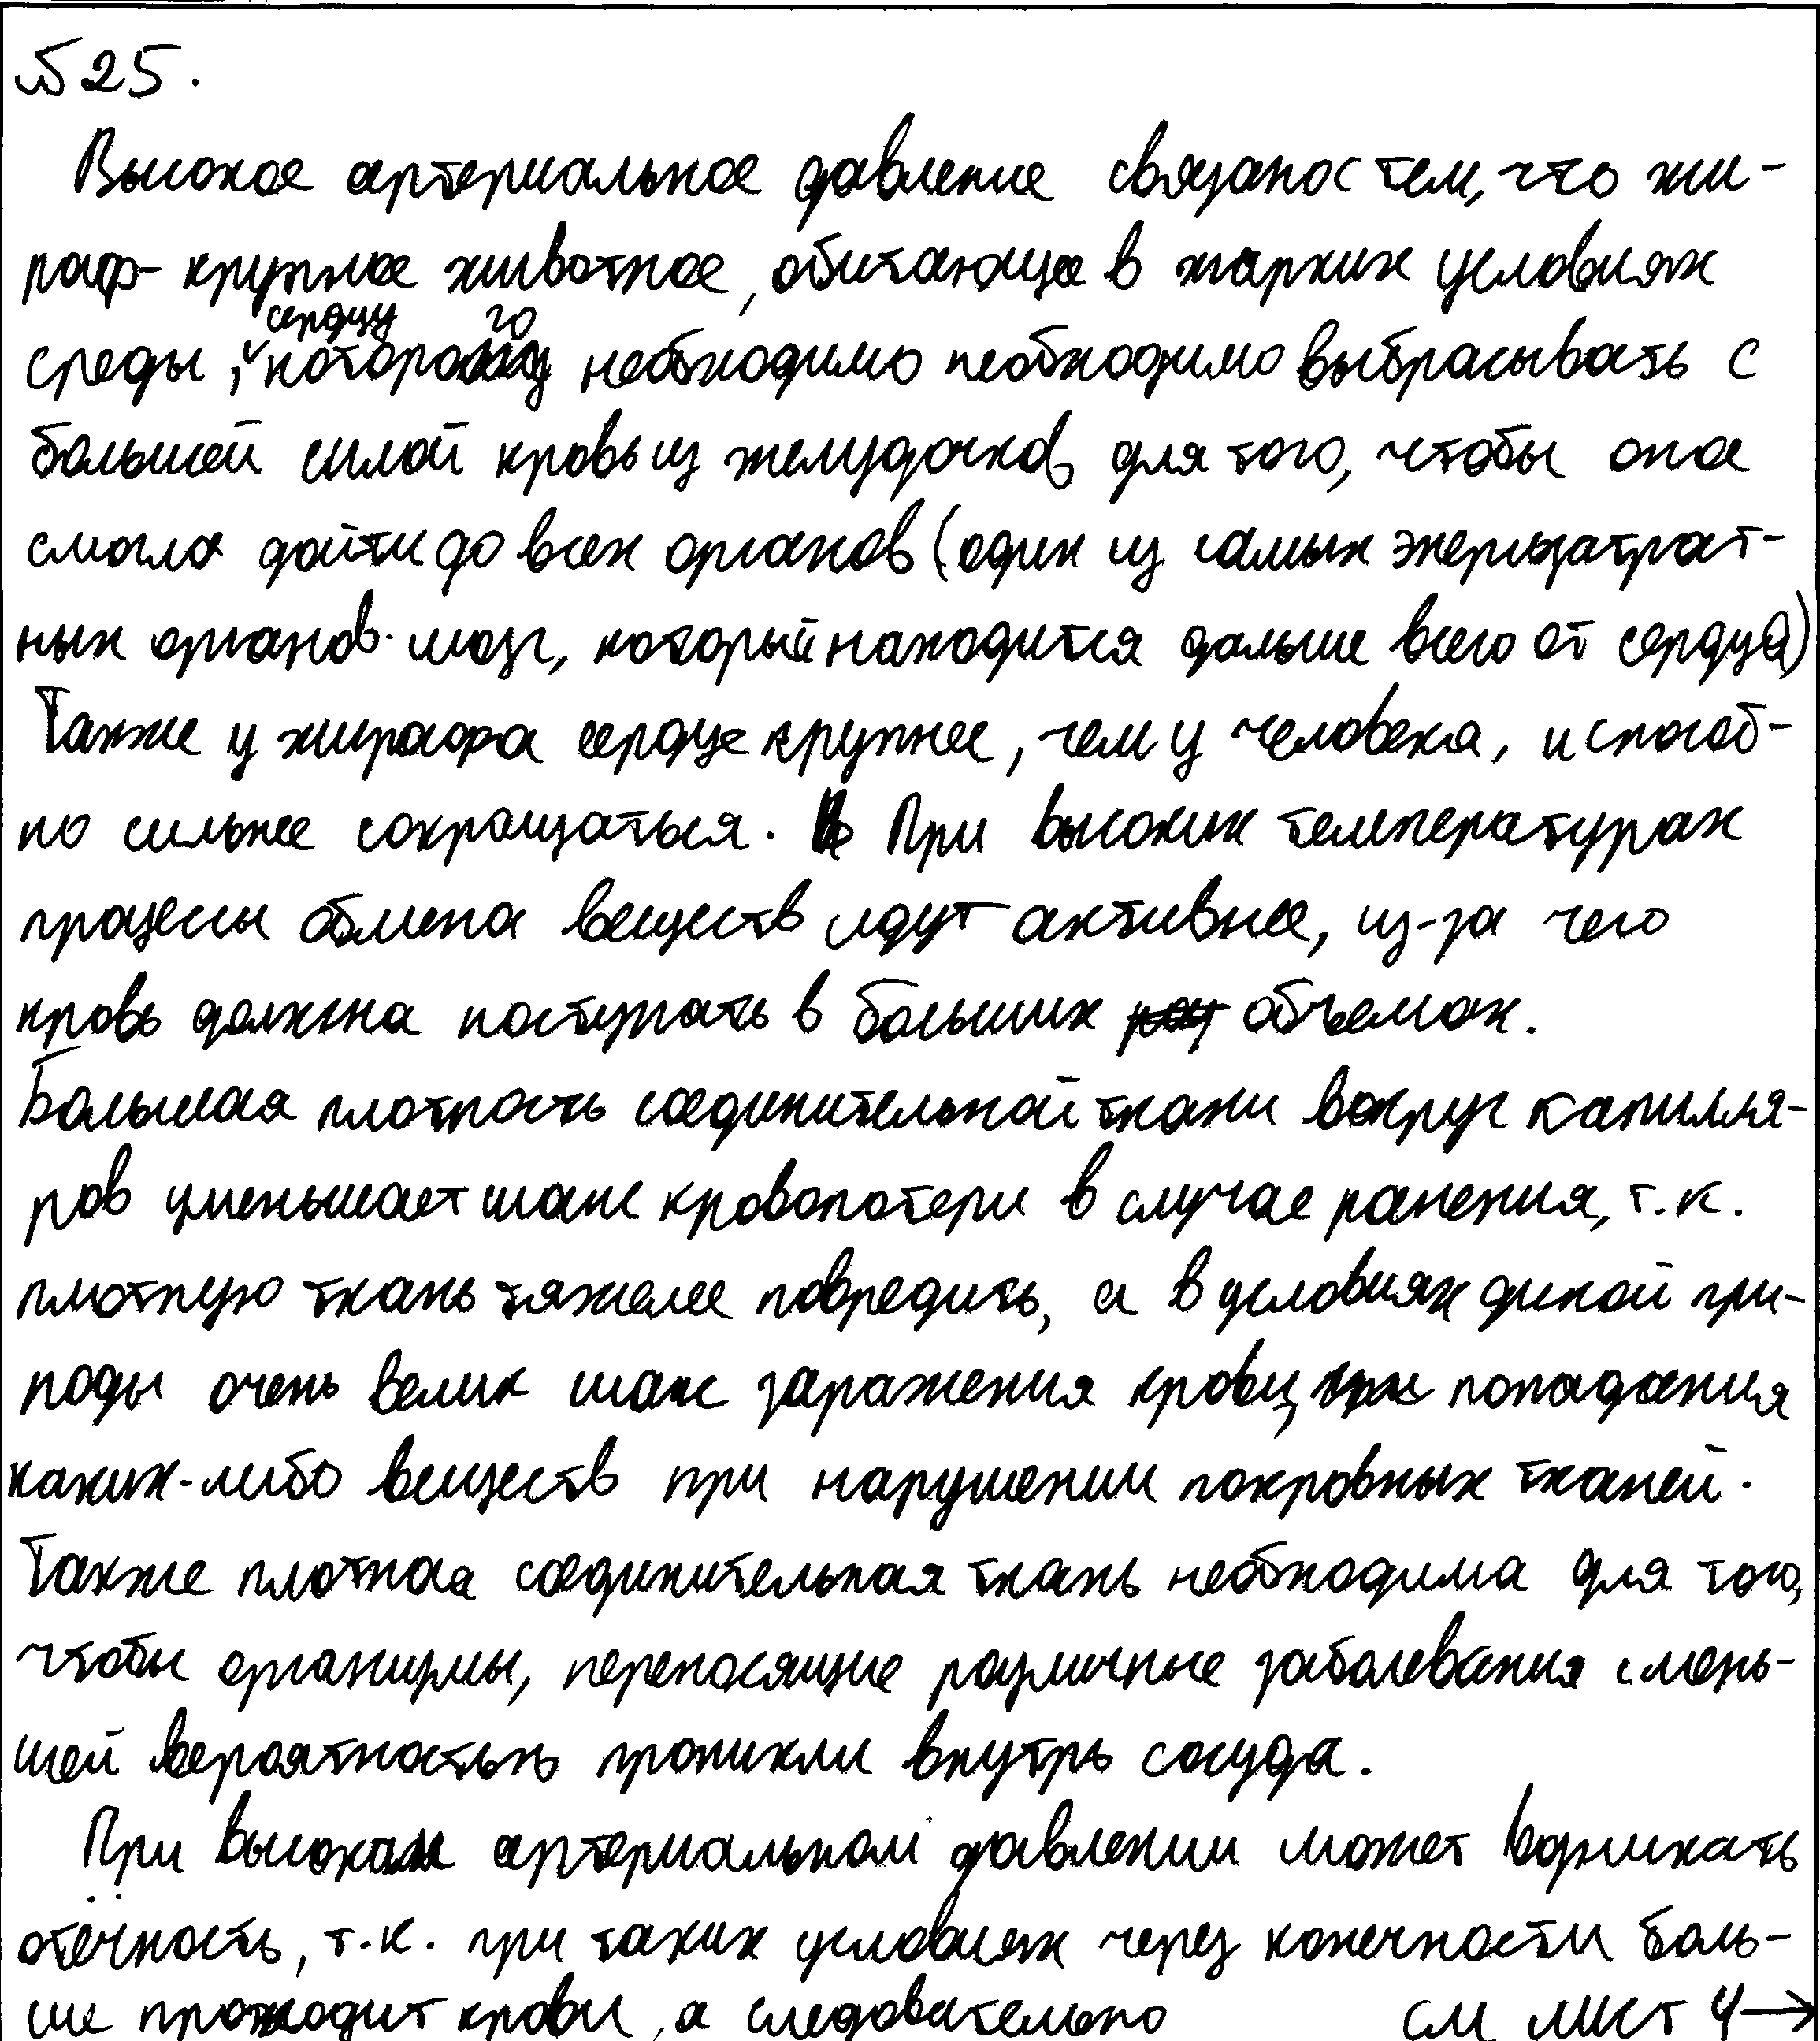 №25.
Высокое артериальное давление связано с тем, что жи-
раф - крупное животное, обитающее в жарких условиях
среды, сердцу которого необходимо необходимо выбрасывать с
большей силой кровь из желудочков, для того, чтобы она
смогла дойти до всех органов (один из самых энергозатрат-
ных органов - мозг, который находится дальше всего от сердца)
Также у жирафа сердце крупнее, чем у человека, и способ-
но сильнее сокращаться. При высоких температурах
процессы обмена веществ идут активнее, из-за чего
кровь должна поступать в больших объемах.
Большая плотность соединительной ткани вокруг капилля-
ров уменьшает шанс кровопотери в случае ранения, т.к.
плотную ткань тяжелее повредить, а в условиях дикой при-
роды очень велик шанс заражения крови, попадания
каких-либо веществ при нарушении покровных тканей.
Также плотная соединительная ткань необходима для того,
чтобы организмы, переносящие различные заболевания с мень-
шей вероятностью проникли внутрь сосуда.
При высоком артериальном давлении может возникать
отёчность, т.к. при таких условиях через конечности боль-
ше проходит крови, а следовательно см лист 4→